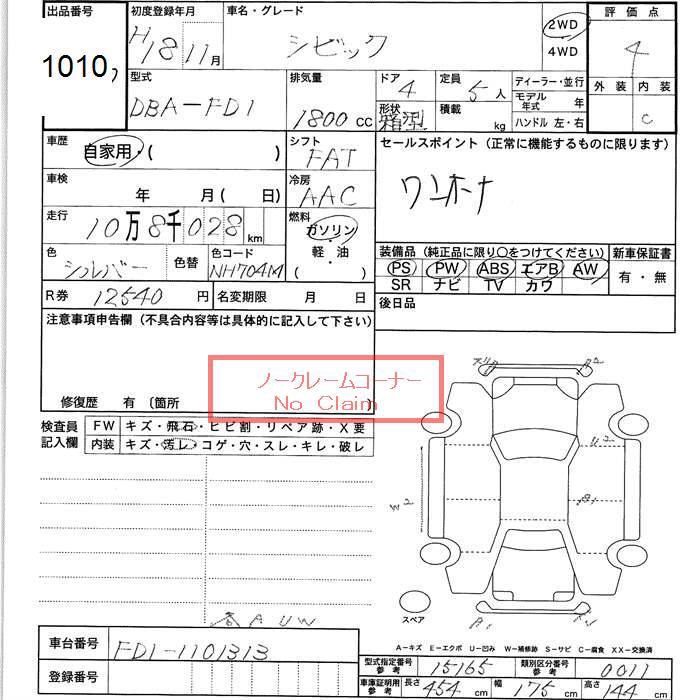 出品番号 初度登録年月 車名・グレード 評価点
1010 H18 11月 シビック 2WD 4WD 4
型式 排気量 ドア 定員 ディーラー・並行 外装 内装
DBA-FD1 1800cc 4 5人 モデル年式 年 C
形状 箱型 積載 kg ハンドル 左・右
車歴 自家用・( ) シフト FAT セールスポイント (正常に機能するものに限ります)
車検 年 月( 日) 冷房 AAC ワンオーナ
走行 10万8千028km 燃料 ガソリン・軽・油 ( )
色 シルバー 色替 色コード NH704M 装備品 (純正品に限り○をつけてください) 新車保証書
PS PW ABS エアB AW 有・無
SR ナビ TV カワ
R券 12540円 名変期限 月 日 後日品
注意事項申告欄 (不具合内容等は具体的に記入して下さい)
ノークレームコーナー
No Claim
修復歴 有 〔箇所
検査員記入欄 FW キズ・飛石・ヒビ割・リペア跡・X要
内装 キズ・汚レ・コゲ・穴・スレ・キレ・破レ
A2
U2
W2
B1
スペア
各AUW
B1
A-キズ E-エクボ U-凹み W-補修跡 S-サビ C-腐食 XX-交換済
車台番号 FD1-1101313
型式指定番号 参考 15165 類別区分番号 参考 0011
登録番号
車庫証明用 参考 長さ 454cm 幅 175cm 高さ 144cm